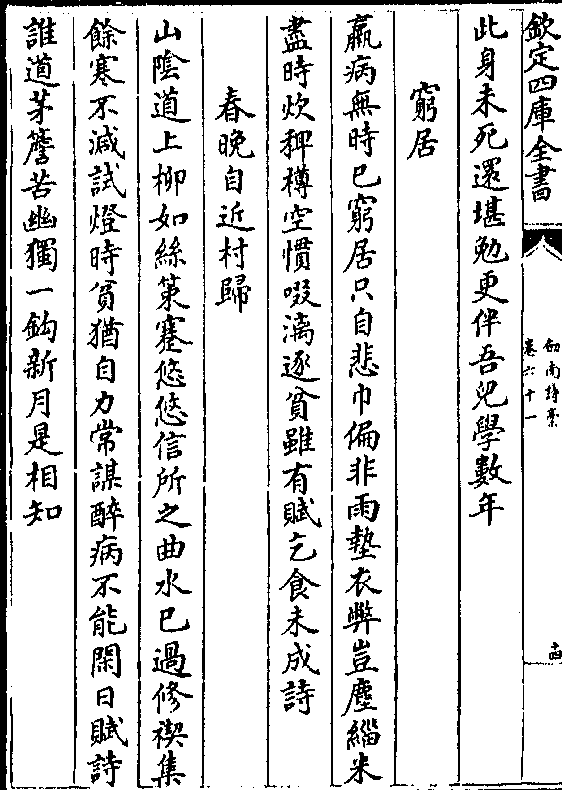 欽定四庫全書
劒南詩稾
卷六十一
十四
此身未死還堪勉更伴吾兒學數年
窮居
羸病無時已窮居只自悲巾偏非雨墊衣弊豈塵緇米
盡時炊稗樽空慣啜漓逐貧雖有賦乞食未成詩
春晚自近村歸
山陰道上柳如絲策蹇悠悠信所之曲水已過修禊集
餘寒不減試燈時貧猶自力常謀醉病不能閑日賦詩
誰道茅簷苦幽獨一鈎新月是相知